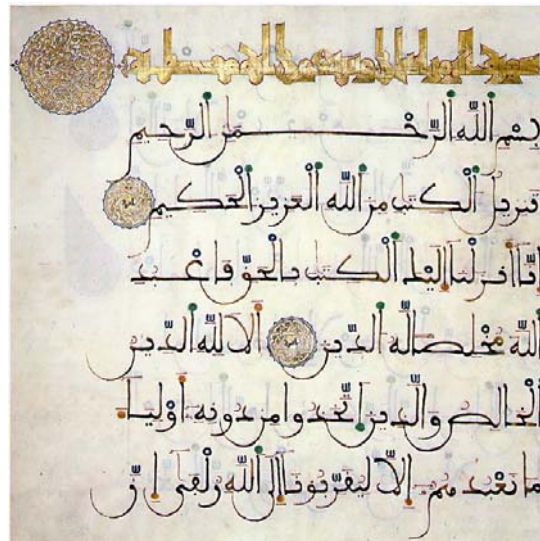 بِسْمِ اللَّهِ الرَّحْمَنِ الرَّحِيمِ
تنزيل الْكتب من اللَّه الْعزيز الْحكيم
إنَّا أنزلنا إليك الْكتب بالْحقّ فاعْبد
اللَّه مخْلصا لّه الدّين ألا للَّه الدّين
الْخالص والّذين اتّخذوا من دونه أوْليا
ما نعْبدهم إلاّ ليقرّبونا إلى اللَّه زلْفى إنّ